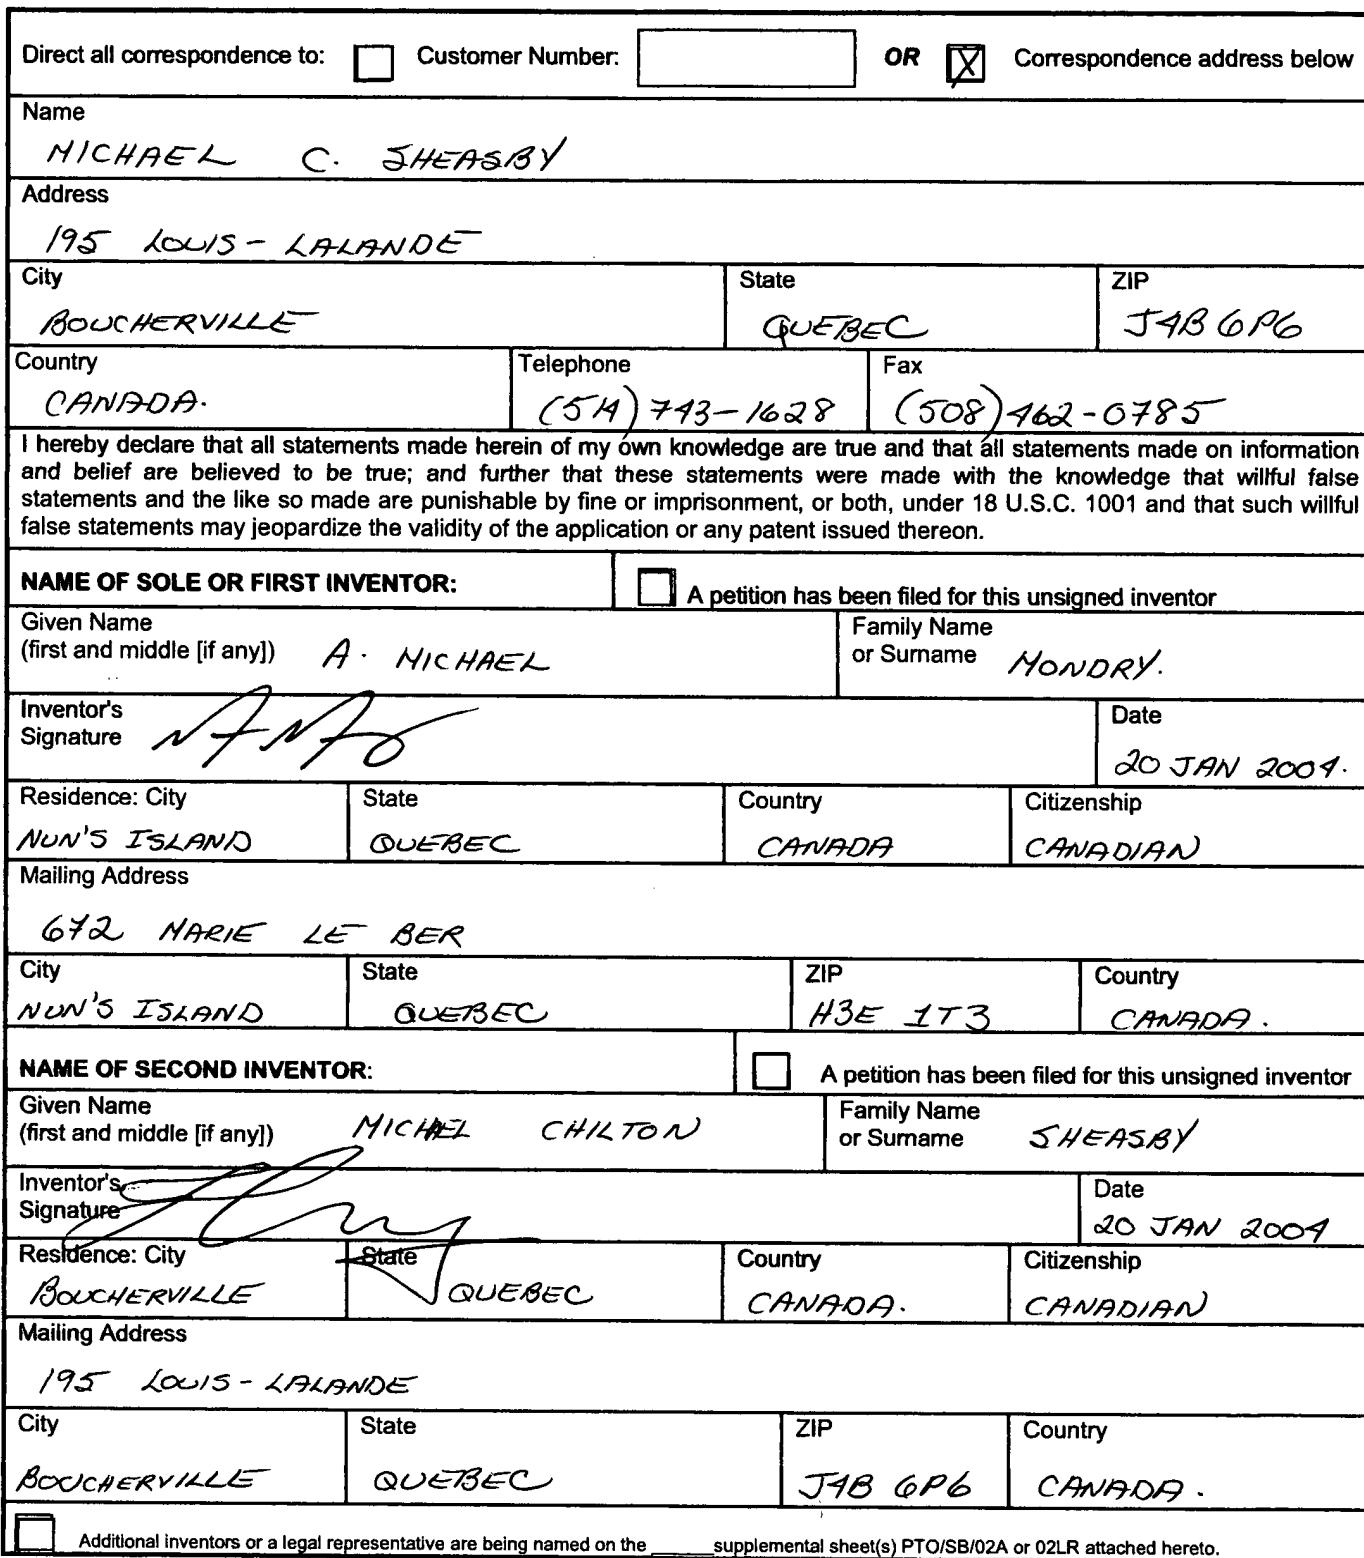 Direct all correspondence to: Customer Number: OR X Correspondence address below
Name
MICHAEL C. SHEASBY
Address
195 LOUIS-LALANDE
City State ZIP
BOUCHERVILLE QUEBEC J4B 6P6
Country Telephone Fax
CANADA. (514) 743-1628 (508) 462-0785
I hereby declare that all statements made herein of my own knowledge are true and that all statements made on information
and belief are believed to be true; and further that these statements were made with the knowledge that willful false
statements and the like so made are punishable by fine or imprisonment, or both, under 18 U.S.C. 1001 and that such willful
false statements may jeopardize the validity of the application or any patent issued thereon.
NAME OF SOLE OR FIRST INVENTOR: A petition has been filed for this unsigned inventor
Given Name Family Name
(first and middle [if any]) A. MICHAEL or Surname MONDRY.
Inventor's Date
Signature 20 JAN 2004.
Residence: City State Country Citizenship
NUN'S ISLAND QUEBEC CANADA CANADIAN
Mailing Address
672 MARIE LE BER
City State ZIP Country
NUN'S ISLAND QUEBEC H3E 1T3 CANADA.
NAME OF SECOND INVENTOR: A petition has been filed for this unsigned inventor
Given Name Family Name
(first and middle [if any]) MICHAEL CHILTON or Surname SHEASBY
Inventor's Date
Signature 20 JAN 2004
Residence: City State Country Citizenship
BOUCHERVILLE QUEBEC CANADA. CANADIAN
Mailing Address
195 LOUIS-LALANDE
City State ZIP Country
BOUCHERVILLE QUEBEC J4B 6P6 CANADA.
Additional inventors or a legal representative are being named on the ______supplemental sheet(s) PTO/SB/02A or 02LR attached hereto.